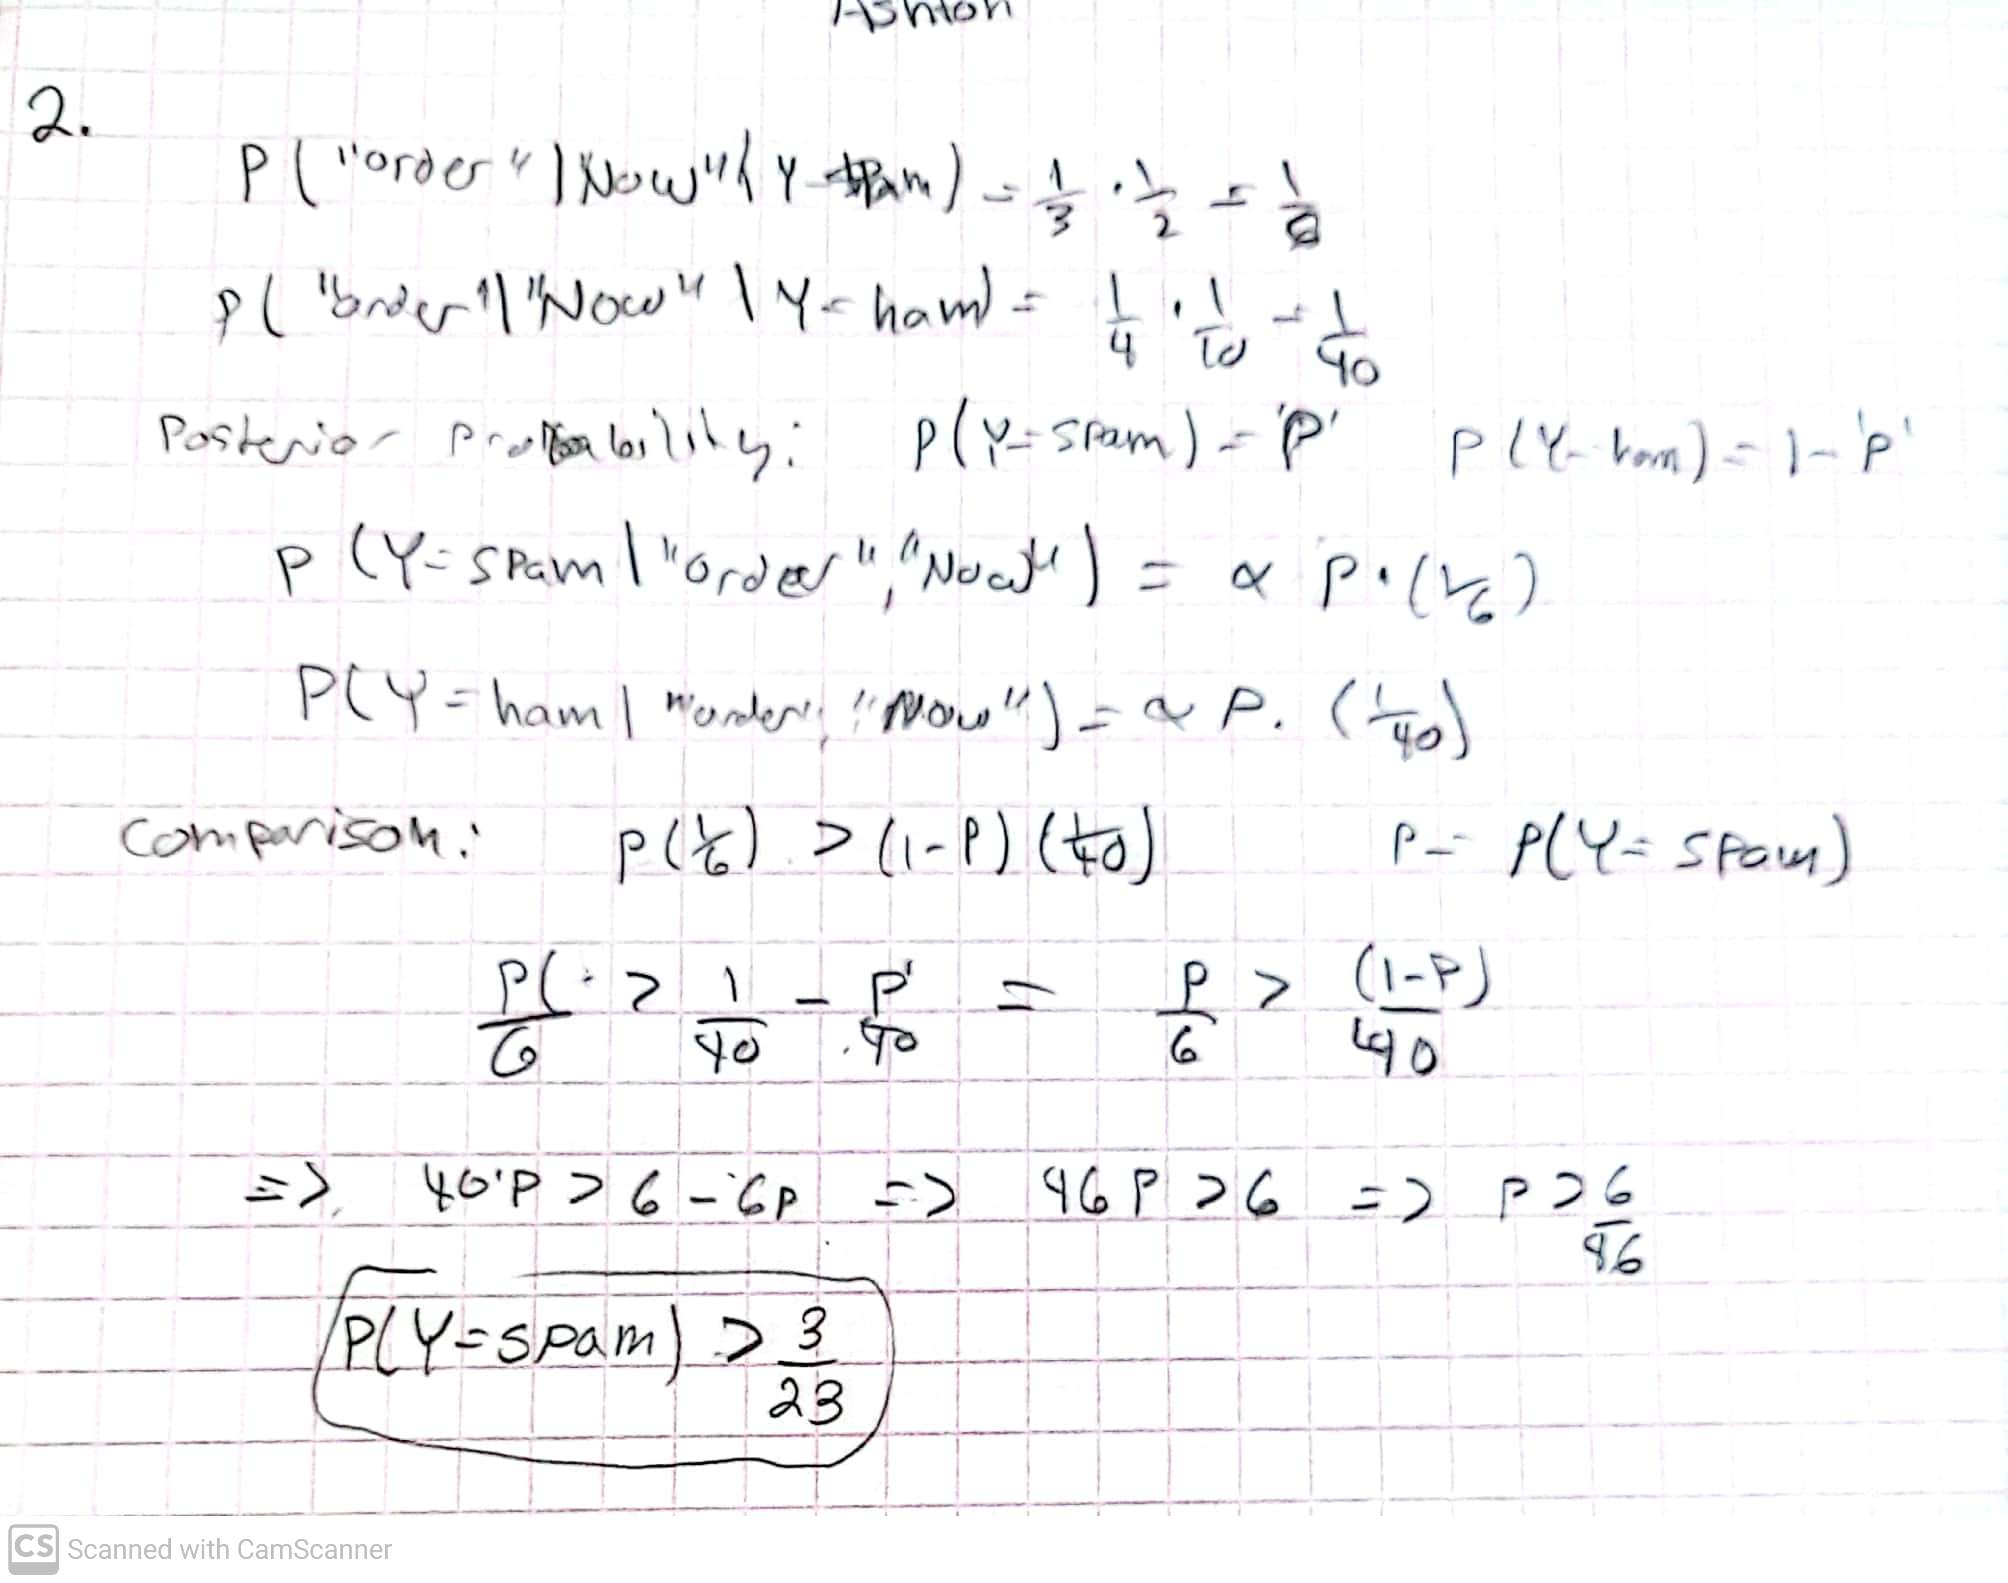 Ashton
2.
P("order" | "Now" | Y = spam) = 1/3 · 1/2 = 1/6
P("order" | "Now" | Y = ham) = 1/4 · 1/10 = 1/40
Posterior Probability: P(Y=spam) = 'P' P(Y=ham) = 1-'P'
P(Y=spam | "order", "Now") = α P·(1/6)
P(Y=ham | "order", "Now") = α P. (1/40)
Comparison: P(1/6) > (1-P)(1/40) P = P(Y=spam)
P(·/6 > 1/40 - P'/40 = P/6 > (1-P)/40
=> 40·P > 6 - 6P => 46P > 6 => P > 6/46
P(Y=spam) > 3/23
CS Scanned with CamScanner